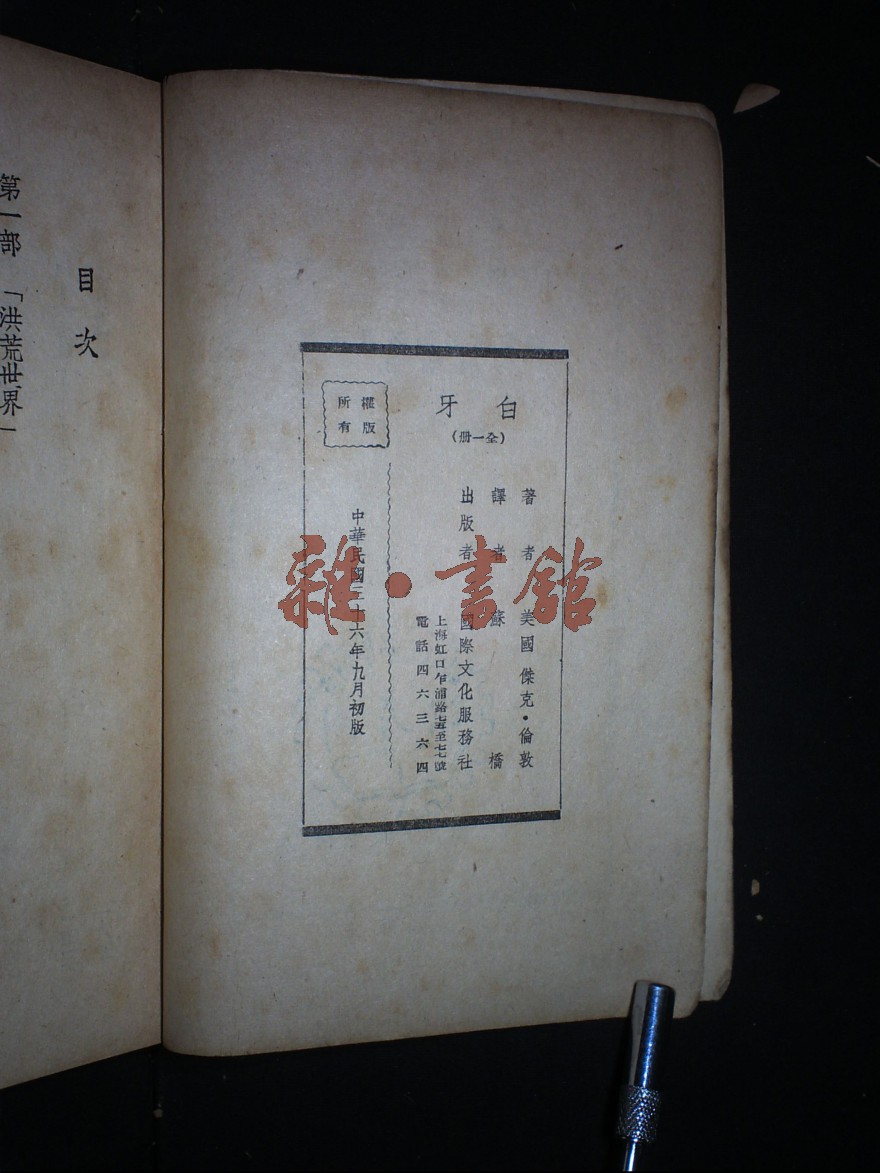 白牙
(全一册)
著者 美國 傑克·倫敦
譯者 蘇橋
出版者 國際文化服務社
上海虹口乍浦路
電話四六三六四
中華民國三十六年九月初版
版權所有
目次
第一部 「洪荒世界」
雜·書館